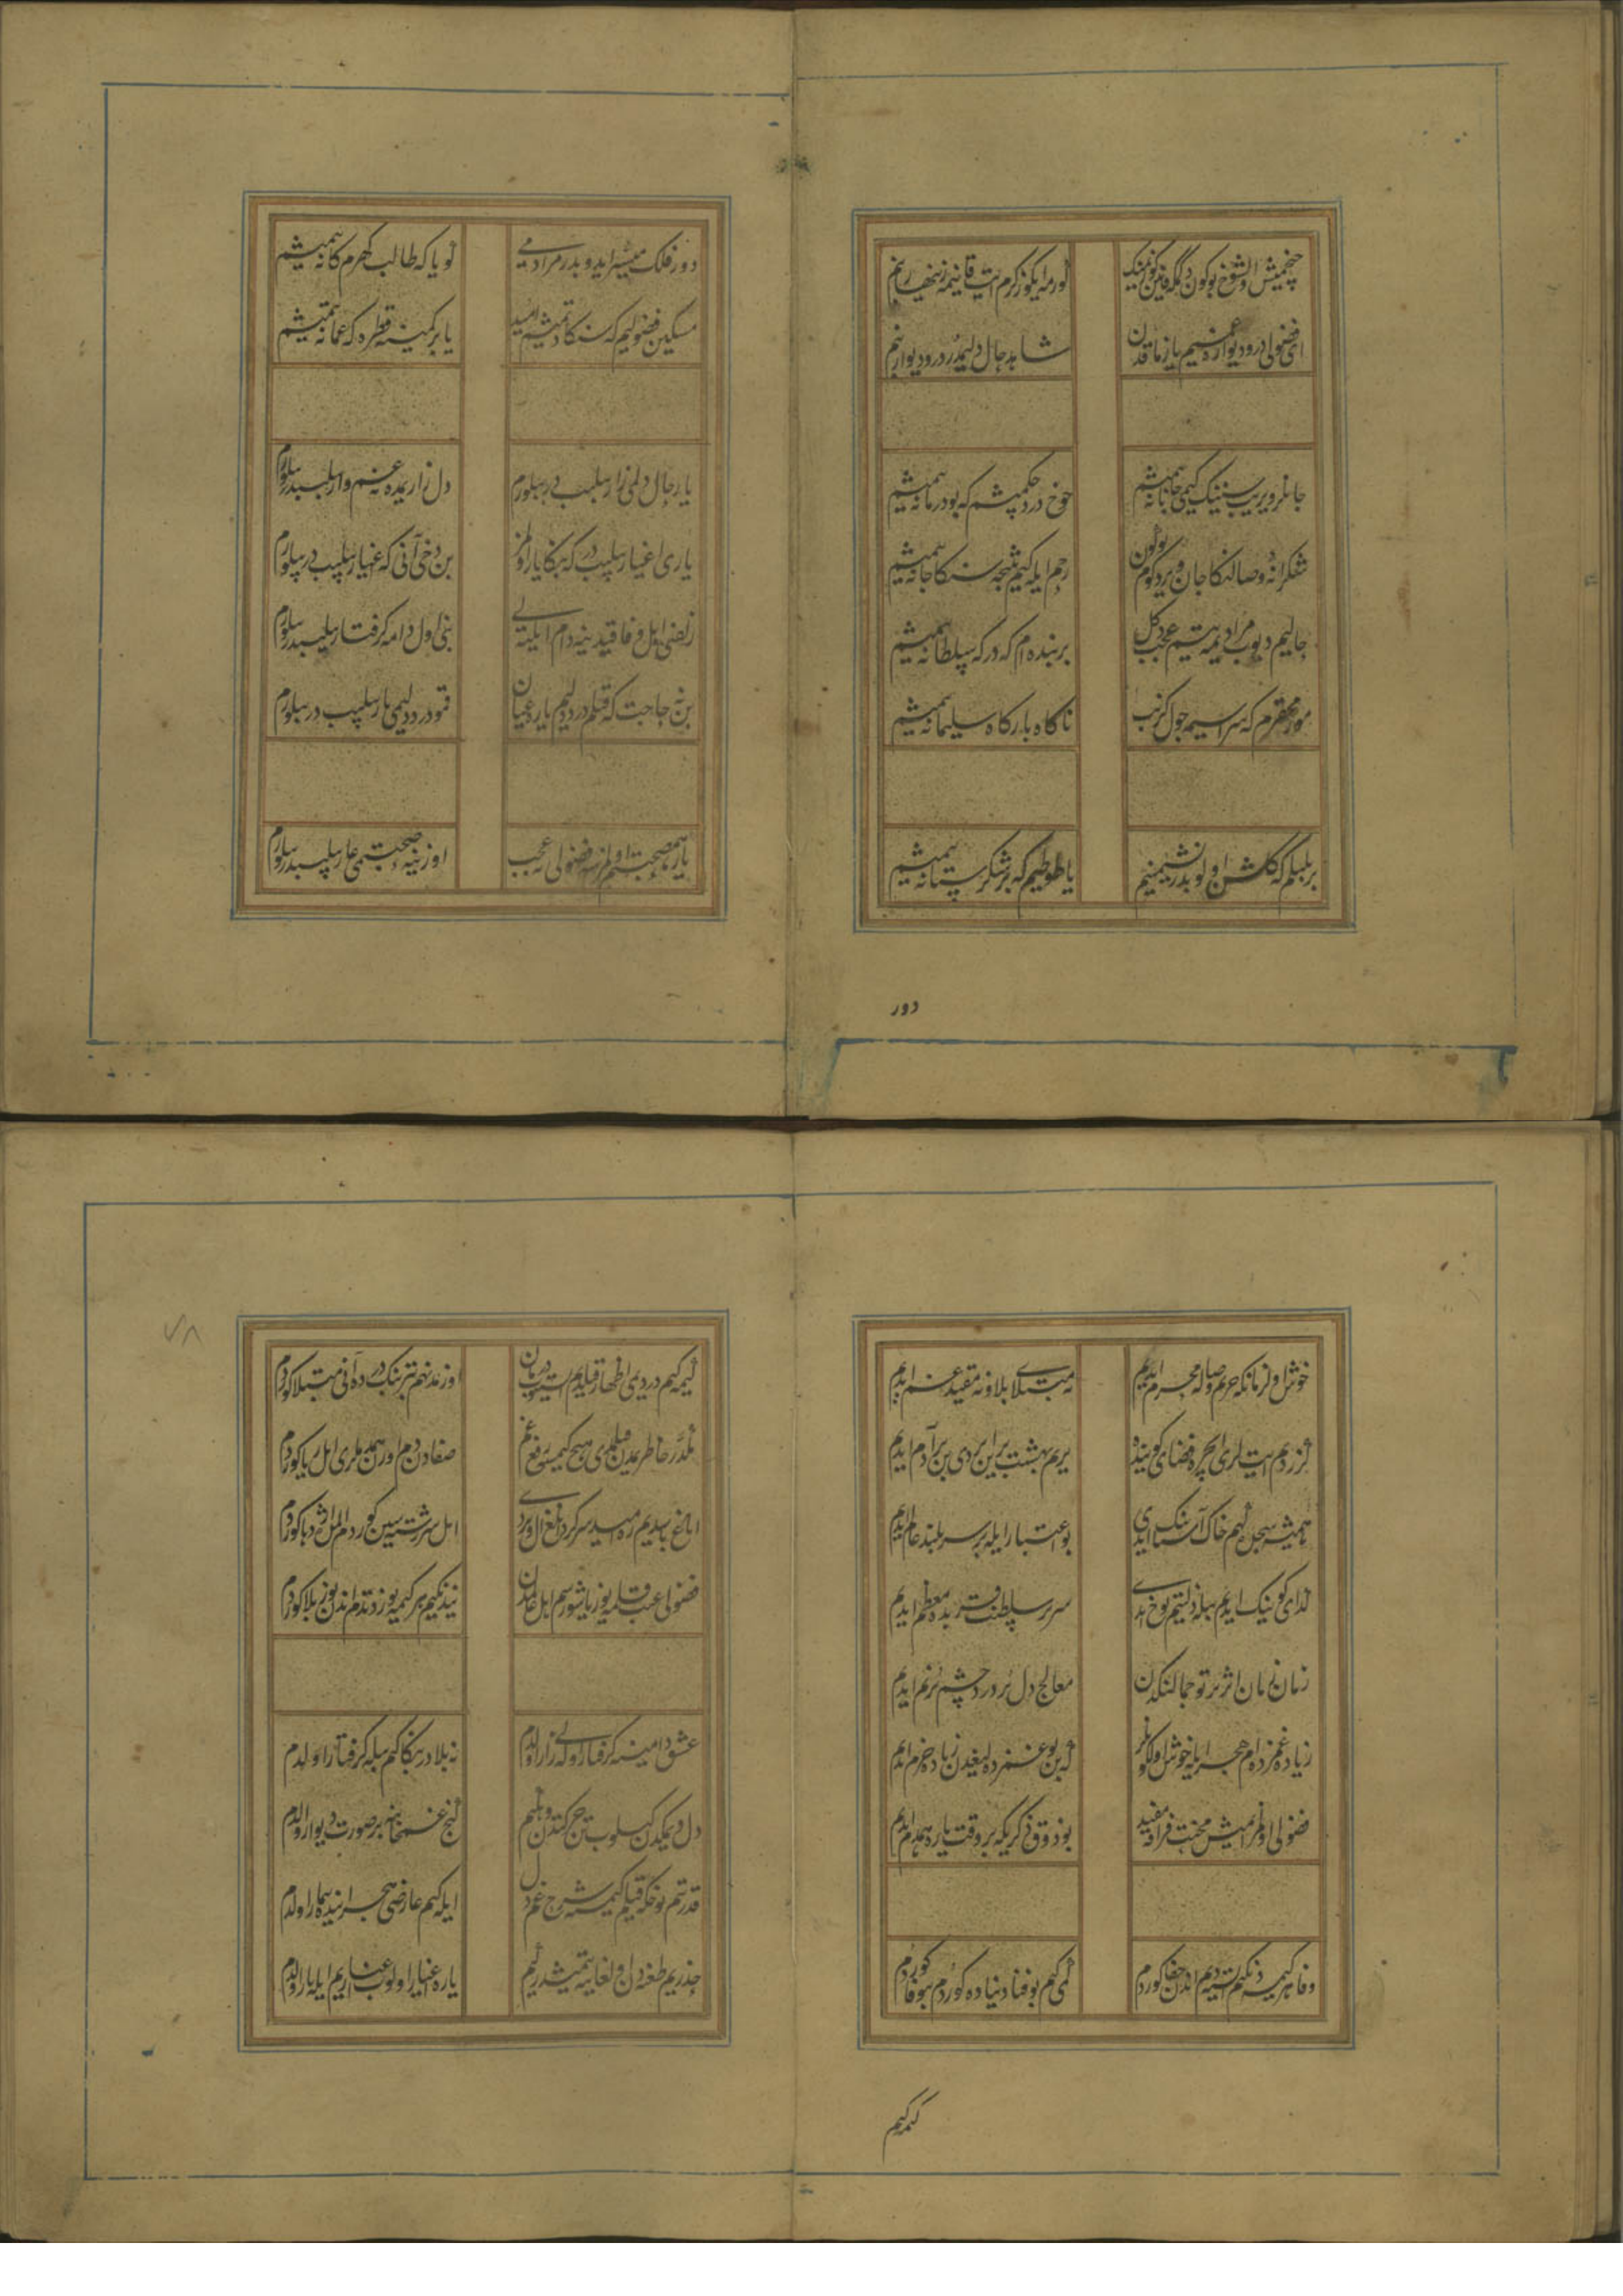 چخمیش اول شوخ بوکون دکمکه قانین کوزمنک
کوزمه ایکوز کرم ایت قانیمه زنهار بنم
ای فضولی در و دیواره غمیم یازماقدن
شاهد حال دلیمدر در و دیوار بنم
جانلر ویریب سنینک کیمی جانانه یتمیشم
خوخ درد چکمیشم که بو درمانه یتمیشم
شکرانه وصالنکا جان ویردوکوم بو کون
رحم ایله کیم نیجه سنکا جانه یتمیشم
حالیم دیوب مرادیمه یتسم عجب دکل
بر بنده ام که درکه سلطانه یتمیشم
مور محقرم که سراسیمه چوخ کزب
ناکاه بارکاه سلیمانه یتمیشم
بر بلبلم که گلشن اولوبدر نشیمنیم
یا طوطیم که بر شکرستانه یتمیشم
دور
دور فلک میسر ایدوبدر مرادیمی
کویا که طالب گهرم کانه یتمیشم
مسکین فضولیم که سنکا دتمیشم امید
یا بر کمینه قطره که عمانه یتمیشم
یار حال دلمی زار بیلیبدر بیلورم
دل زاریمده نه غم وار بیلیبدر بیلورم
یاری اغیار بیلیبدر که بنکا یار اولمز
بن دخی آنی که اغیار بیلیبدر بیلورم
زلفنی اهل وفا قیدینه دام ایله یلی
بنی اول دامه گرفتار بیلیبدر بیلورم
بن نه حاجت که قیلم درد دلیم یاره عیان
قمو درد دلیمی یار بیلیبدر بیلورم
یار همصحبتم اولمزسه فضولی نه عجب
اوزینه صحبتمی عار بیلیبدر بیلورم
خوش اول زمانکه حریم وصاله محرم ایدیم
نه مبتلای بلا و نه مقید غم ایدیم
کزردم ایت لری ایچره فضای کوینده
یریم بهشت برین ایدی بن بر آدم ایدیم
همیشه سجده کهیم خاک آستانک ایدی
بو اعتبار ایله بر سربلند عالم ایدیم
گدای کوینک ایدیم بیله ذلتیم یوخ ایدی
سریر سلطنت قربده معظم ایدیم
زمان زمان اثر پرتو جمالنکدن
معالج دل پر درد و چشم پرنم ایدیم
زیاده غمزده ام هجر ایله خوش اول کونلر
که بن بو غمزده لیغیدن زیاده خرم ایدیم
فضولی اولمز ایمیش محنت فراقه مفید
بو ذوق ذکری که بر وقت یاره همدم ایدیم
وفا هر کیمسه دنکیم ایستدیم اندن جفا کوردم
کیمی کیم بو فنا دنیاده کوردم بیوفا کوردم
کیمه کیم
کیمه کیم دردیمی اظهار قیلدیم ایستیوب درمان
اوزمدنهم بتر بنک درده آنی مبتلا کوردم
مکدر خاطریمدن قیلمدی هیچ کیمسه رفع غم
صفادن دم اورن همدملری اهل ریا کوردم
ایاغ باسدیم ره امیده سرکردانلغ ال ویردی
امل سررشته سین کوردم المده اژدها کوردم
فضولی عیب قیلمه یوز چویرسم اهل عالمدن
نیدنکیم هر کیمه یوز دتدم اندن یوز بلا کوردم
عشق دامینه گرفتار اولالی زار اولدم
نه بلادر بنکا کیم بیله گرفتار اولدم
دل دیمکدن کسیلوب حرکتدن قالدیم
کنج غمخانه ده بر صورت دیوار اولدم
قدرتم یوخ که قیلم کیمسه یه شرح غم دل
ایله کیم عارضی هجرانیده بیمار اولدم
یاره اغیار اولوب اغیاریم ایله یار اولدم